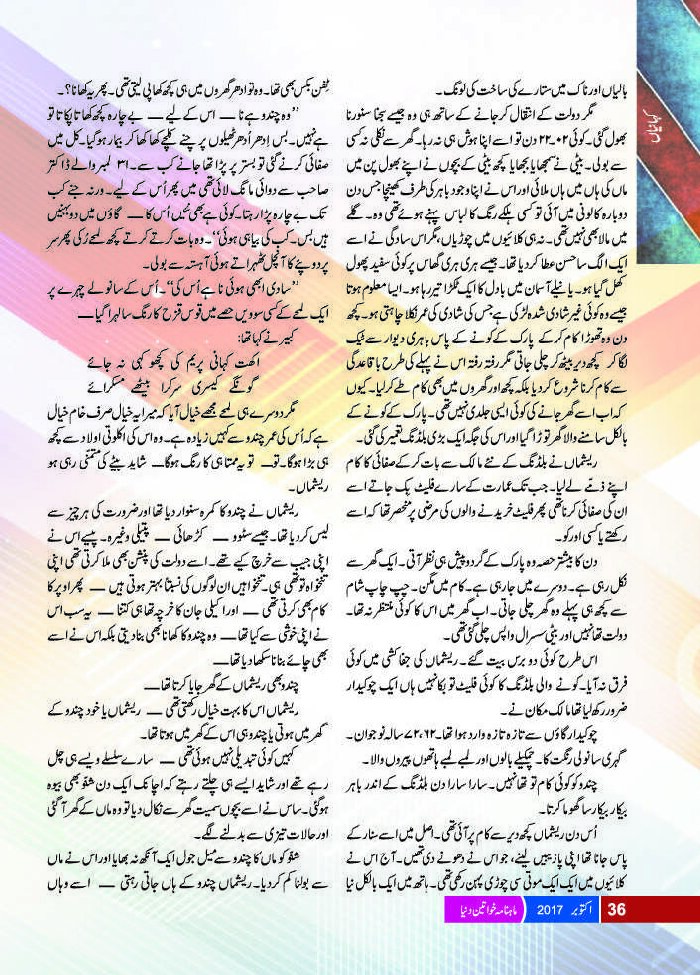 کہانیاں
بالیاں اور ناک میں ستارے کی ساخت کی لونگ۔
مگر دولت کے انتقال کر جانے کے ساتھ ہی وہ جیسے سجنا سنورنا
بھول گئی۔ کوئی ۰۲-۲۲ دن تو اسے اپنا ہوش ہی نہ رہا۔ گھر سے نکلی نہ کسی
سے بولی۔ بیٹی نے سمجھایا بجھایا کچھ بیٹی کے بچوں نے اپنے بھول پن میں
ماں کی ہاں میں ہاں ملائی اور اس نے اپنا وجود باہر کی طرف کھینچا جس دن
دوبارہ کالونی میں آئی تو کسی ہلکے رنگ کا لباس پہنے ہوئے تھی وہ۔ گلے
میں مالا بھی نہیں تھی۔ نہ ہی کلائیوں میں چوڑیاں، مگر اس سادگی نے اسے
ایک الگ سا حسن عطا کر دیا تھا۔ جیسے ہری ہری گھاس پر کوئی سفید پھول
کھل گیا ہو۔ یا نیلے آسمان میں بادل کا ایک ٹکڑا تیر رہا ہو۔ ایسا معلوم ہوتا
جیسے وہ کوئی غیر شادی شدہ لڑکی ہے جس کی شادی کی عمر نکلا چاہتی ہو۔ کچھ
دن وہ تھوڑا کام کر کے پارک کے کونے کے پاس باہری دیوار سے ٹیک
لگا کر کچھ دیر بیٹھ کر چلی جاتی مگر رفتہ رفتہ اس نے پہلے کی طرح باقاعدگی
سے کام کرنا شروع کر دیا بلکہ کچھ اور گھروں میں بھی کام طے کر لیا۔ کیوں
کہ اب اسے گھر جانے کی کوئی ایسی جلدی نہیں تھی۔ پارک کے کونے کے
بالکل سامنے والا گھر توڑا گیا اور اس کی جگہ ایک بڑی بلڈنگ تعمیر کی گئی۔
ریشماں نے بلڈنگ کے نئے مالک سے بات کر کے صفائی کا کام
اپنے ذمّے لے لیا۔ جب تک عمارت کے سارے فلیٹ بِک جاتے اسے
ان کی صفائی کرنا تھی پھر فلیٹ خریدنے والوں کی مرضی پر منحصر تھا کہ اسے
رکھتے یا کسی اور کو۔
دن کا بیشتر حصہ وہ پارک کے گرد و پیش ہی نظر آتی۔ ایک گھر سے
نکل رہی ہے۔ دوسرے میں جا رہی ہے۔ کام میں مگن۔ چپ چاپ شام
سے کچھ ہی پہلے وہ گھر چلی جاتی۔ اب گھر میں اس کا کوئی منتظر نہ تھا۔
دولت تھا نہیں اور بیٹی سسرال واپس چلی گئی تھی۔
اس طرح کوئی دو برس بیت گئے۔ ریشماں کی جفاکشی میں کوئی
فرق نہ آیا۔ کونے والی بلڈنگ کا کوئی فلیٹ تو بکا نہیں ہاں ایک چوکیدار
ضرور رکھ لیا تھا مالک مکان نے۔
چوکیدار گاؤں سے تازہ تازہ وارد ہوا تھا۔ ۶۲،۷۲ سالہ نوجوان۔
گہری سانولی رنگت کا۔ چمکیلے بالوں اور لمبے لمبے ہاتھوں پیروں والا۔
چندو کو کوئی کام تو تھا نہیں۔ سارا سارا دن بلڈنگ کے اندر باہر
بیکار بیکار سا گھوما کرتا۔
اُس دن ریشماں کچھ دیر سے کام پر آئی تھی۔ اصل میں اسے سنار کے
پاس جانا تھا اپنی پازیبیں لینے، جو اس نے دھونے دی تھیں۔ آج اس نے
کلائیوں میں ایک ایک موتی سی چوڑی پہن رکھی تھی۔ ہاتھ میں ایک بالکل نیا
ٹفن بکس بھی تھا۔ وہ تو ادھر گھروں میں ہی کچھ کھا پی لیتی تھی۔ پھر یہ کھانا؟۔
’’وہ چندو ہے نا — اس کے لیے — بے چارہ کچھ کھاتا پکاتا تو
ہے نہیں۔ بس اِدھر اُدھر ٹھیلوں پر چنے کلچے کھا کھا کر بیمار ہو گیا۔ کل میں
صفائی کرنے گئی تو بستر پر پڑا تھا جانے کب سے۔ ۳۱ لمبر والے ڈاکٹر
صاحب سے دوائی مانگ لائی تھی میں پھر اُس کے لیے۔ ورنہ جنے کب
تک بے چارہ پڑا رہتا۔ کوئی ہے بھی نئیں اُس کا — گاؤں میں دو بہنیں
ہیں بس۔ کب کی بیاہی ہوئی‘‘۔ وہ بات کرتے کرتے کچھ لمحے رُکی پھر سر
پر دوپٹے کا آنچل ٹھہراتے ہوئی آہستہ سے بولی۔
’’سادی ابھی ہوئی نا ہے اُس کی‘‘۔ اُس کے سانولے چہرے پر
ایک لمحے کے کسی سوویں حصے میں قوس قزح کا رنگ سا لہرا گیا —
کبیر نے کہا تھا:
اکھت کہانی پریم کی کچھو کہی نہ جائے
گونگے کیسری سرکرا بیٹھے مسکرائے
مگر دوسرے ہی لمحے مجھے خیال آیا کہ میرا یہ خیال صرف خام خیال
ہے کہ اُس کی عمر چندو سے کہیں زیادہ ہے۔ وہ اس کی اکلوتی اولاد سے کچھ
ہی بڑا ہوگا۔ تو — تو یہ ممتا ہی کا رنگ ہوگا — شاید بیٹے کی متمنّی رہی ہو
ریشماں۔
ریشماں نے چندو کا کمرہ سنوار دیا تھا اور ضرورت کی ہر چیز سے
لیس کر دیا تھا۔ جیسے سٹوو — کڑھائی — پتیلی وغیرہ۔ پیسے اس نے
اپنی جیب سے خرچ کیے تھے۔ اسے دولت کی پنشن بھی ملا کرتی تھی اپنی
تنخواہ تو تھی ہی۔ تنخواہیں ان لوگوں کی نسبتاً بہتر ہوتی ہیں — پھر اوپر کا
کام بھی کرتی تھی — اور اکیلی جان کا خرچہ تھا ہی کتنا — یہ سب اس
نے اپنی خوشی سے کیا تھا — وہ چندو کا کھانا بھی بنا دیتی بلکہ اس نے اسے
بھی چائے بنانا سکھا دیا تھا —
چندو بھی ریشماں کے گھر جایا کرتا تھا —
ریشماں اس کا بہت خیال رکھتی تھی — ریشماں یا خود چندو کے
گھر میں ہوتی یا چندو ہی اس کے گھر میں ہوتا تھا۔
کہیں کوئی تبدیلی نہیں ہوئی تھی — سارے سلسلے ویسے ہی چل
رہے تھے اور شاید ایسے ہی چلتے رہتے کہ اچانک ایک دن شنّو بھی بیوہ
ہو گئی۔ ساس نے اسے بچوں سمیت گھر سے نکال دیا تو وہ ماں کے گھر آ گئی
اور حالات تیزی سے بدلنے لگے۔
شنّو کو ماں کا چندو سے میل جول ایک آنکھ نہ بھایا اور اس نے ماں
سے بولنا کم کر دیا۔ ریشماں چندو کے ہاں جاتی رہتی — اسے وہاں
36 اکتوبر 2017 ماہنامہ خواتین دنیا